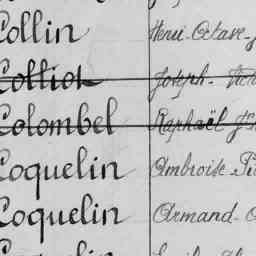 Collin Henri-Octave-
Colliot Joseph-
Colombel Raphaël
Coquelin Ambroise-
Coquelin Armand-